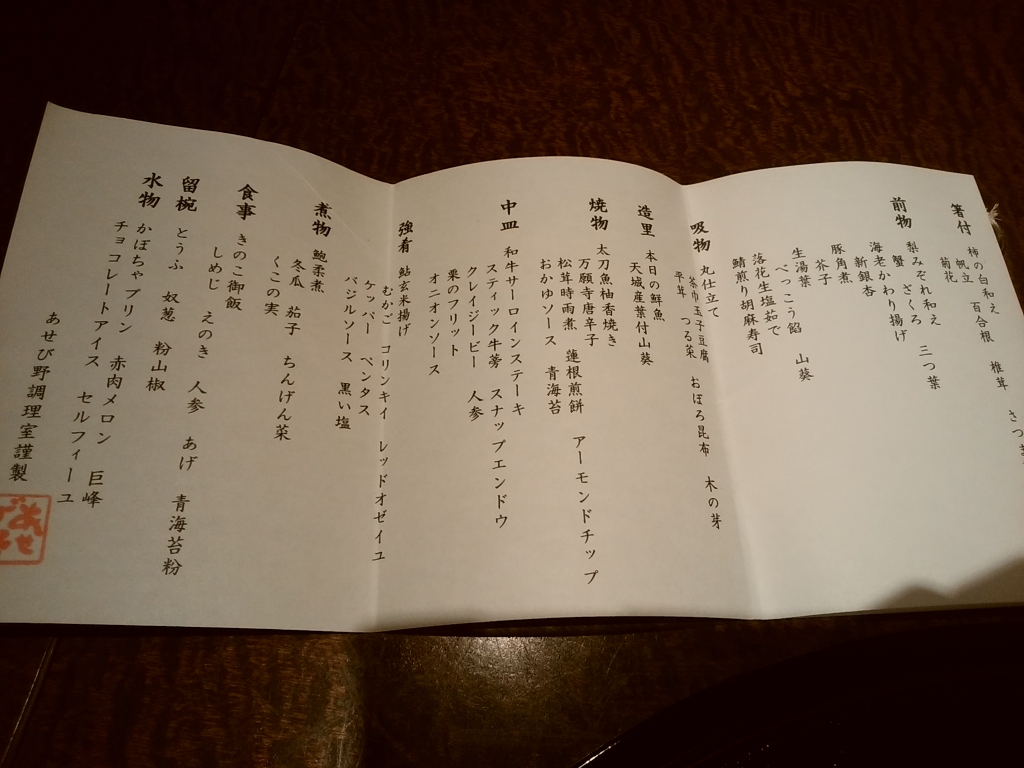 箸付 柿の白和え 百合根 椎茸
帆立
菊花
前物 梨みぞれ和え 三つ葉
蟹 ざくろ
海老かわり揚げ
新銀杏
豚角煮
芥子
生湯葉 山葵
べっこう餡
落花生塩茹で
鯖煎り胡麻寿司
吸物 丸仕立て
茶巾玉子豆腐 おぼろ昆布 木の芽
平茸 つる菜
造里 本日の鮮魚
天城産葉付山葵
焼物 太刀魚柚香焼き
万願寺唐辛子
松茸時雨煮 蓮根煎餅 アーモンドチップ
おかゆソース 青海苔
中皿 和牛サーロインステーキ
スティック牛蒡 スナップエンドウ
クレイジーピー 人参
栗のフリット
オニオンソース
強肴 鮎玄米揚げ
むかご コリンキイ レッドオゼイユ
ケッパー ペンタス
バジルソース 黒い塩
煮物 鮑柔煮
冬瓜 茄子 ちんげん菜
くこの実
食事 きのこ御飯
しめじ えのき 人参 あげ 青海苔粉
留椀 とうふ 奴葱 粉山椒
水物 かぼちゃプリン 赤肉メロン 巨峰
チョコレートアイス セルフィーユ
あせび野調理室謹製